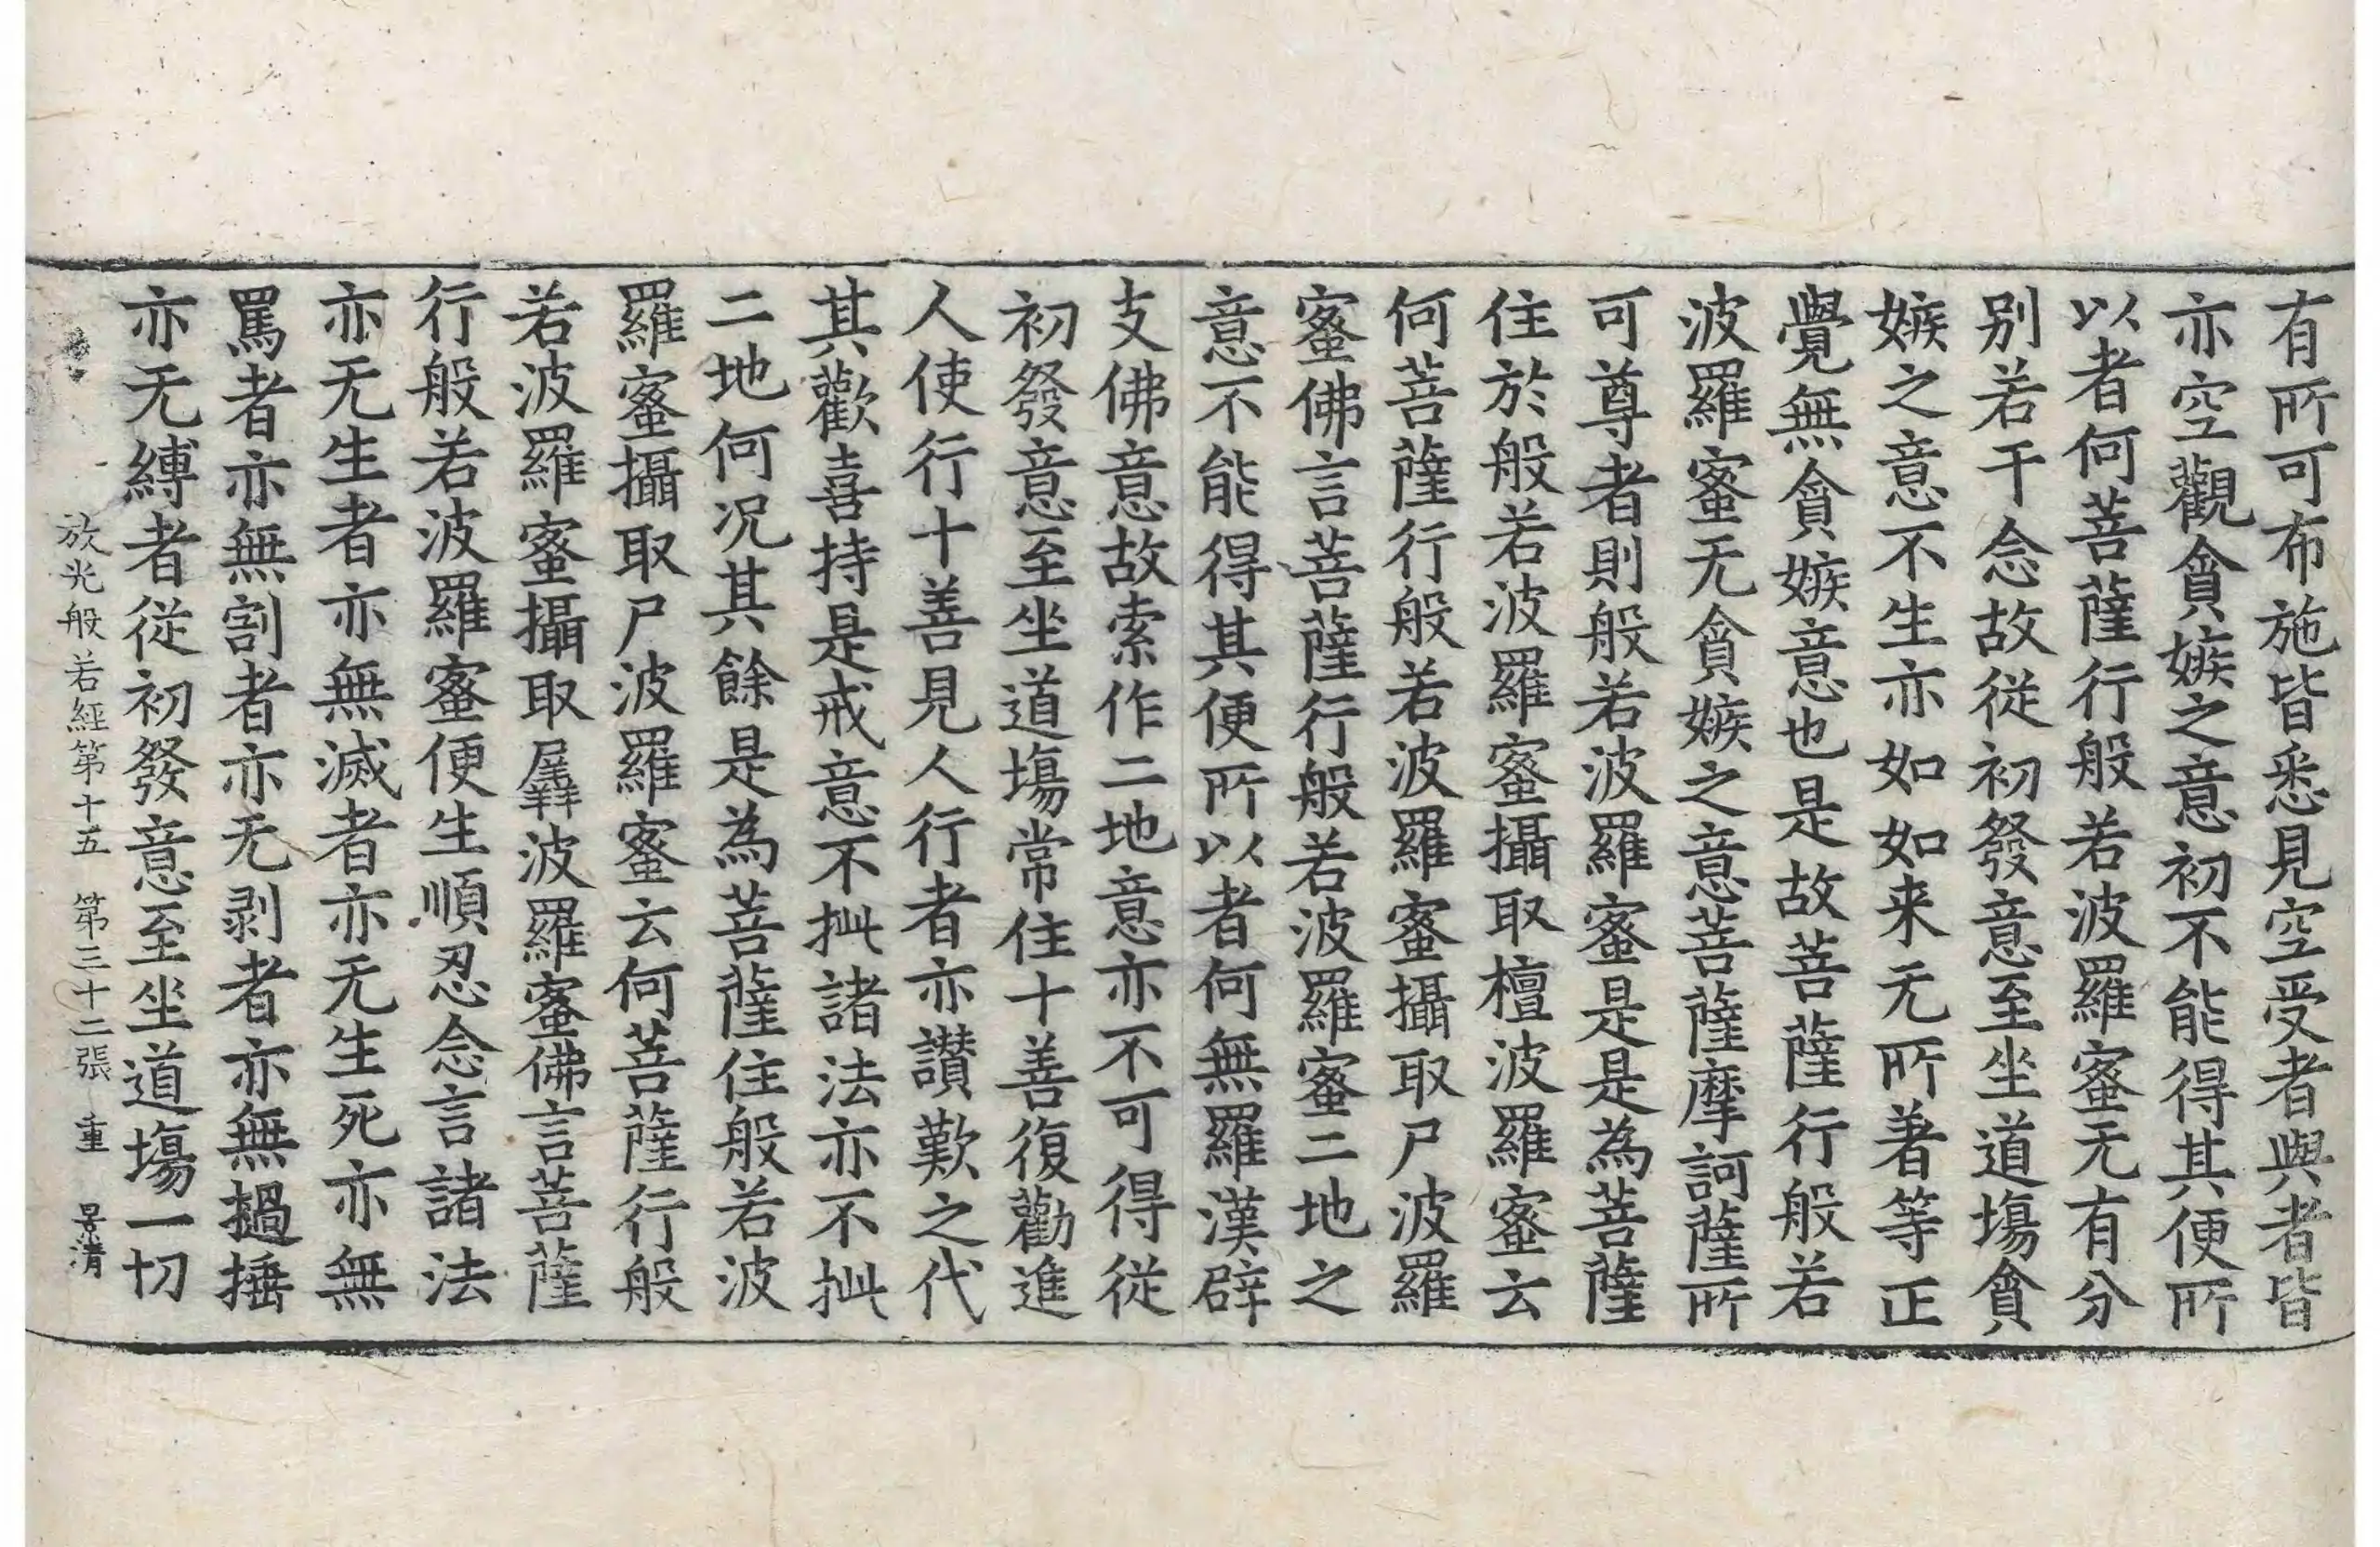 有所可布施皆悉見空受者與者皆
亦空觀貪嫉之意初不能得其便所
以者何菩薩行般若波羅蜜无有分
别若干念故從初發意至坐道場貪
嫉之意不生亦如如来无所著等正
覺無貪嫉意也是故菩薩行般若
波羅蜜无貪嫉之意菩薩摩訶薩所
可尊者則般若波羅蜜是是為菩薩
住於般若波羅蜜攝取檀波羅蜜云
何菩薩行般若波羅蜜攝取尸波羅
蜜佛言菩薩行般若波羅蜜二地之
意不能得其便所以者何無羅漢辟
支佛意故索作二地意亦不可得從
初發意至坐道場常住十善復勸進
人使行十善見人行者亦讃歎之代
其歡喜持是戒意不𢪃諸法亦不𢪃
二地何况其餘是為菩薩住般若波
羅蜜攝取尸波羅蜜云何菩薩行般
若波羅蜜攝取羼波羅蜜佛言菩薩
行般若波羅蜜便生順忍念言諸法
亦无生者亦無滅者亦无生死亦無
罵者亦無割者亦无剥者亦無撾捶
亦无縛者從初發意至坐道場一切
放光般若經第十五　第三十二張　重　景清